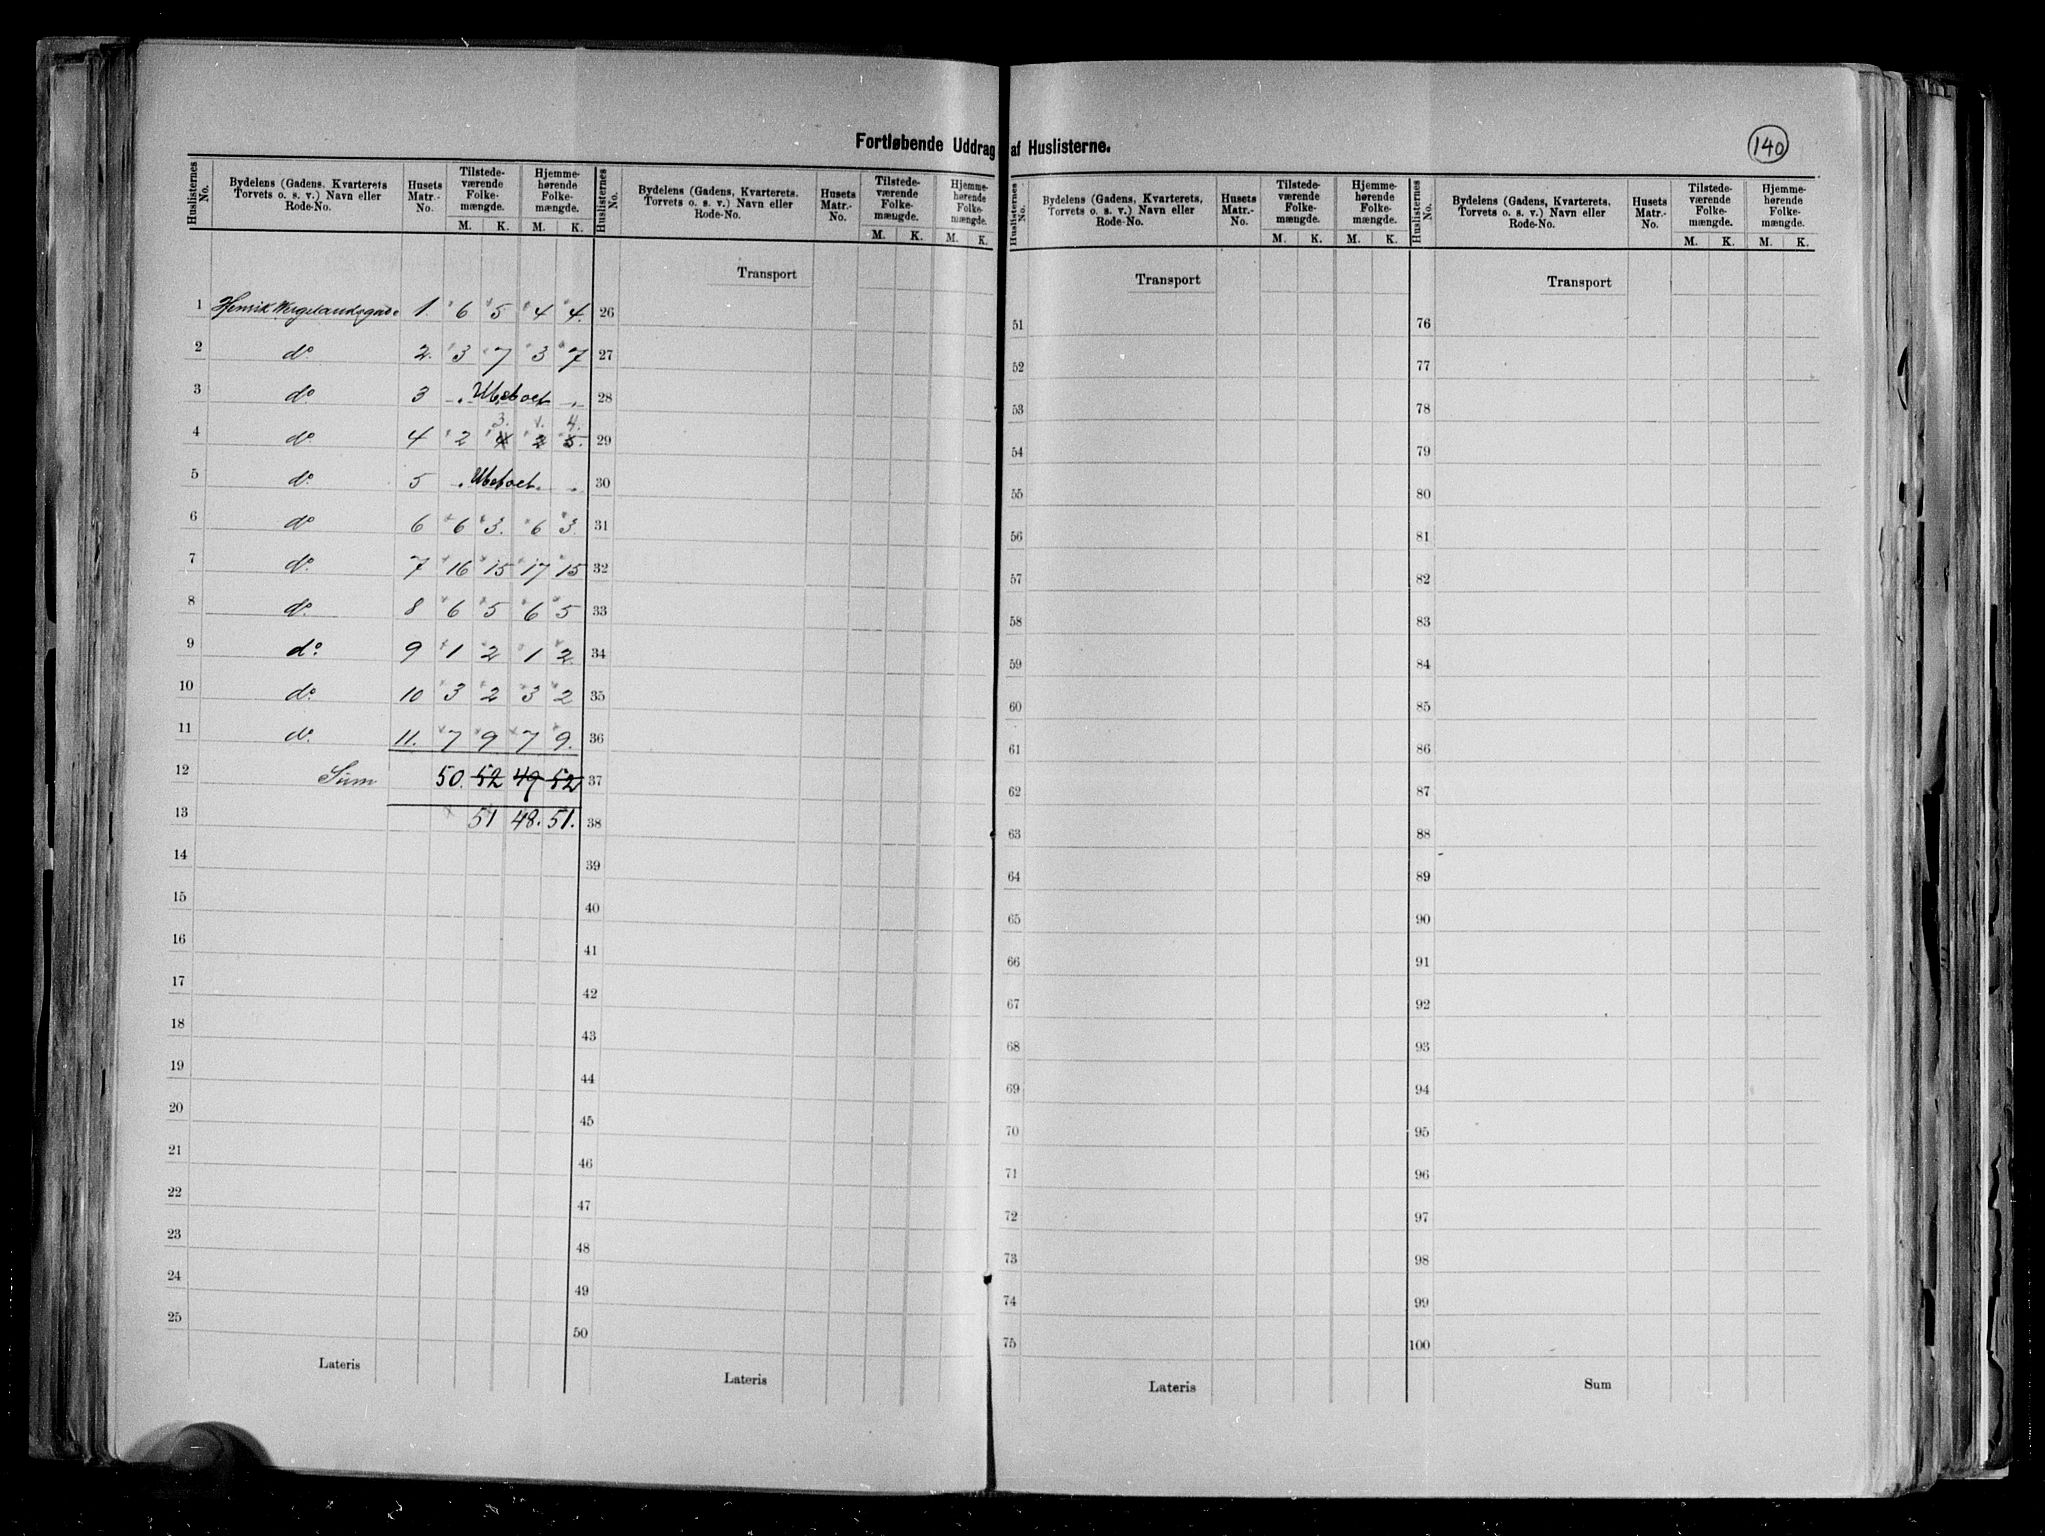 Fortløbende Uddrag af Huslisterne.
140
Huslisternes No. Bydelens (Gadens, Kvarterets Torvets o. s. v.) Navn eller Rode-No. Husets Matr.-No. Tilstede-værende Folke-mængde. M. K. Hjemme-hørende Folke-mængde. M. K.
1 Henrik Wergelandsgade 1. 6 5 4 4.
2 do 2. 3 7 3 7
3 do 3 Ubeboet
3. 1. 4.
4 do. 4 2 4 2 5.
5 do. 5 Ubeboet
6 do 6 6 3. 6 3.
7 do. 7 16 15 17 15
8 do. 8 6 5 6 5
9 do. 9 1 2 1 2
10 do. 10 3 2 3 2
11 do. 11. 7 9. 7 9.
12 Sum 50. 52 49 52
13 51 48. 51.
14
15
16
17
18
19
20
21
22
23
24
25
Lateris
Huslisternes No. Bydelens (Gadens, Kvarterets. Torvets o. s. v.) Navn eller Rode-No. Husets Matr.-No. Tilstede-værende Folke-mængde. M. K. Hjemme-hørende Folke-mængde. M. K.
Transport
26
27
28
29
30
31
32
33
34
35
36
37
38
39
40
41
42
43
44
45
46
47
48
49
50
Lateris
Huslisternes No. Bydelens (Gadens, Kvarterets, Torvets o. s. v.) Navn eller Rode-No. Husets Matr.-No. Tilstede-værende Folke-mængde. M. K. Hjemme-hørende Folke-mængde. M. K.
Transport
51
52
53
54
55
56
57
58
59
60
61
62
63
64
65
66
67
68
69
70
71
72
73
74
75
Lateris
Huslisternes No. Bydelens (Gadens, Kvarterets, Torvets o. s. v.) Navn eller Rode-No. Husets Matr.-No. Tilstede-værende Folke-mængde. M. K. Hjemme-hørende Folke-mængde. M. K.
Transport
76
77
78
79
80
81
82
83
84
85
86
87
88
89
90
91
92
93
94
95
96
97
98
99
100
Sum